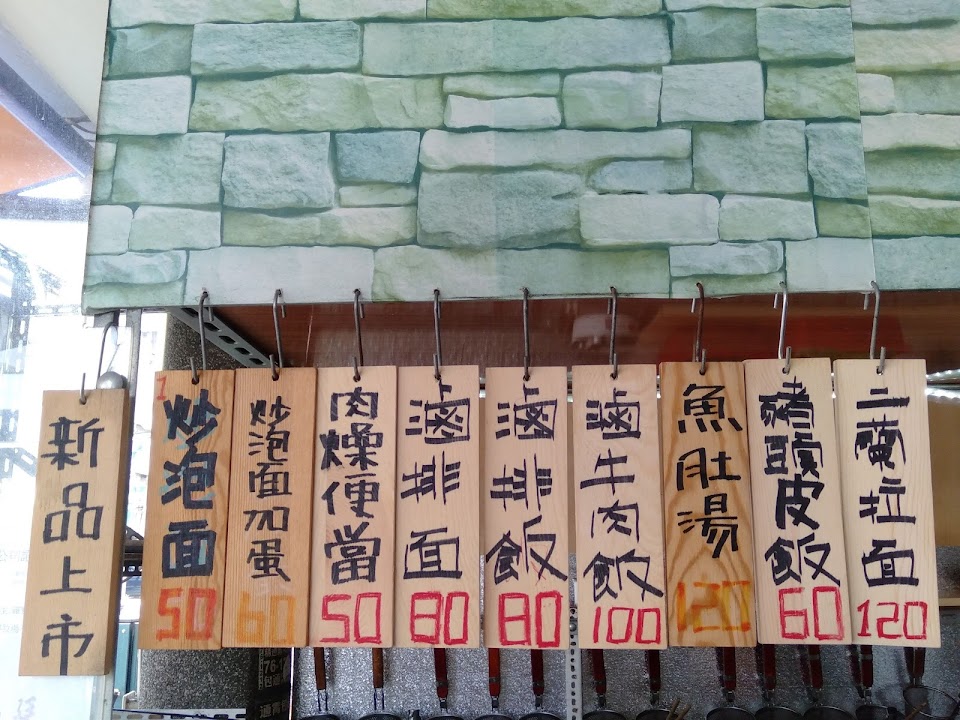 新品上市
1
炒泡面
50
炒泡面加蛋
60
肉燥便當
50
滷排面
80
滷排飯
80
滷牛肉飯
100
魚肚湯
120
豬頭皮飯
60
二蘭拉面
120